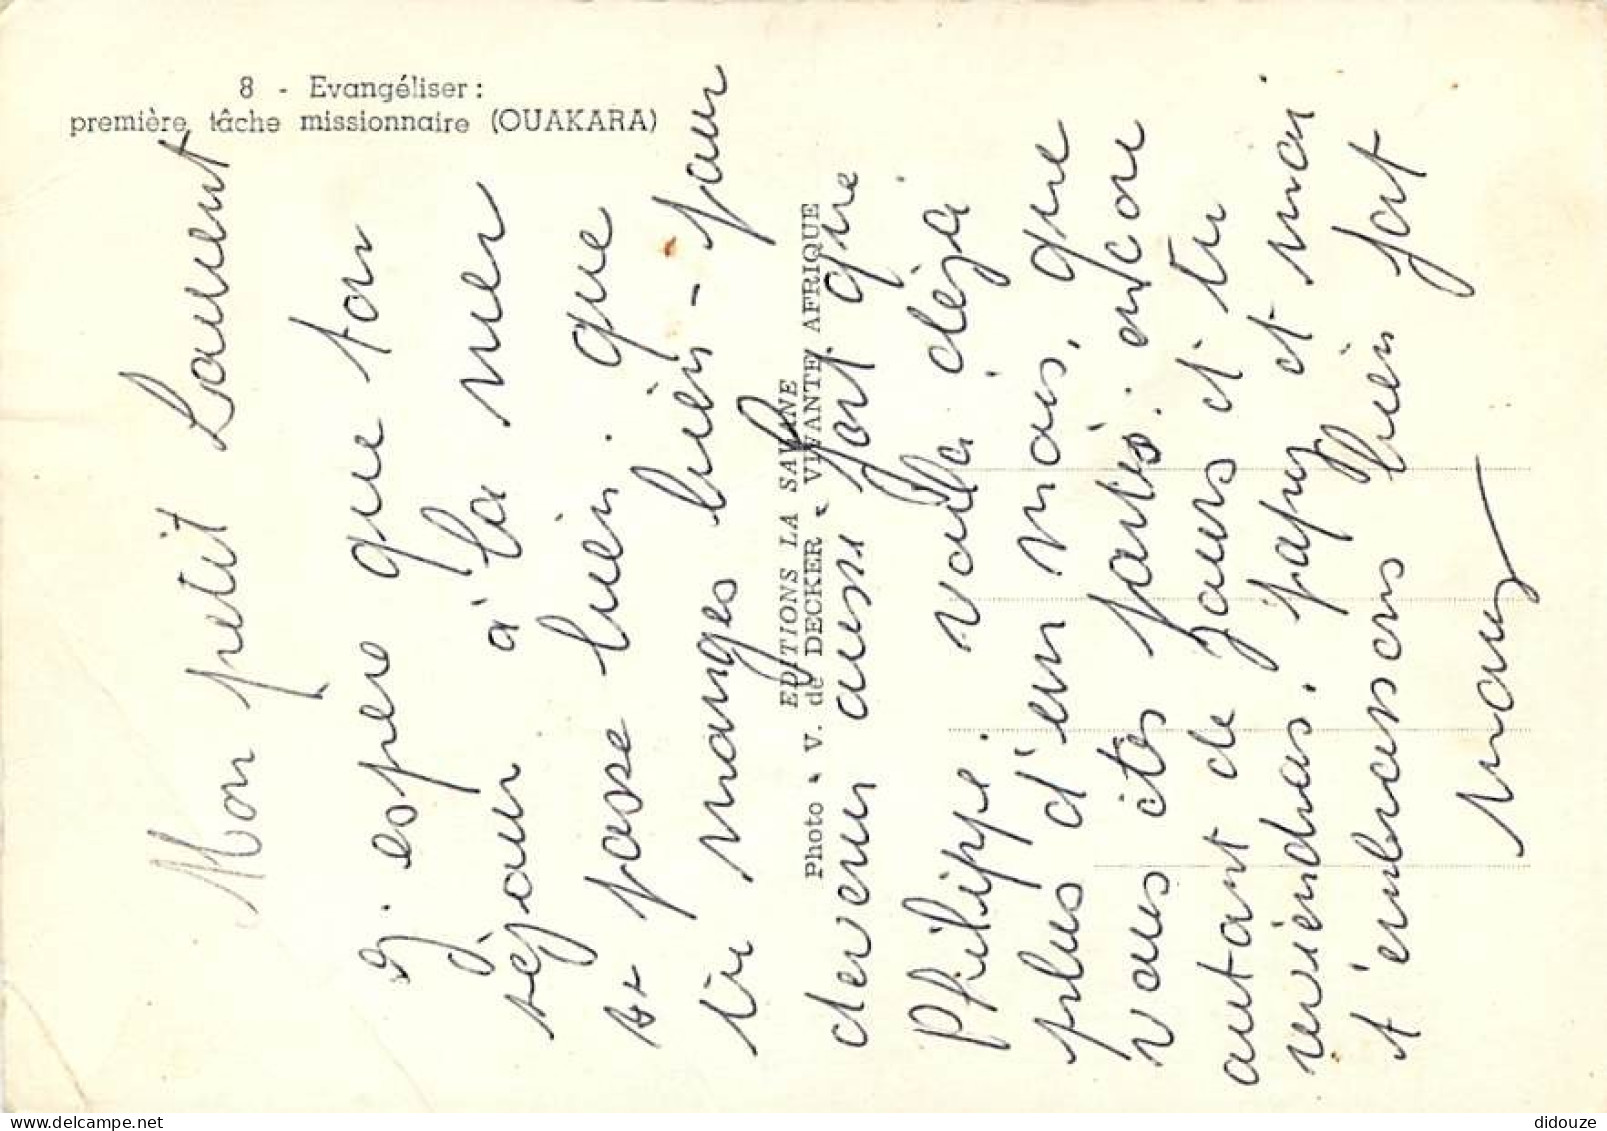 8 - Evangéliser :
première tâche missionnaire (OUAKARA)
EDITIONS LA SAVANE
Photo • V. de DECKER • VIVANTE AFRIQUE
Mon petit Laurent
J'espère que ton
séjour à la mer
se passe bien. que
tu manges bien - pour
devenir aussi fort que
Philippe. voilà déjà
plus d'un mois, que
vous êtes partis. encore
autant de jours et tu
reviendras. papy et moi
t'embrassons bien fort
many
didouze